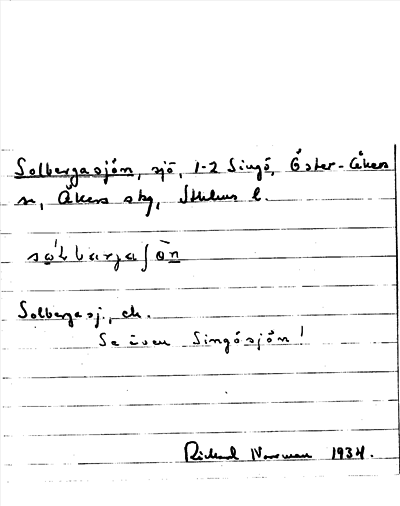 Solbergasjön, sjö, 1-2 Singö, Öster-Åkers
sn, Åkers skg, Sthlms l.
Solbergasj., ek.
Se även Singösjön!
Richard Norrman 1934.